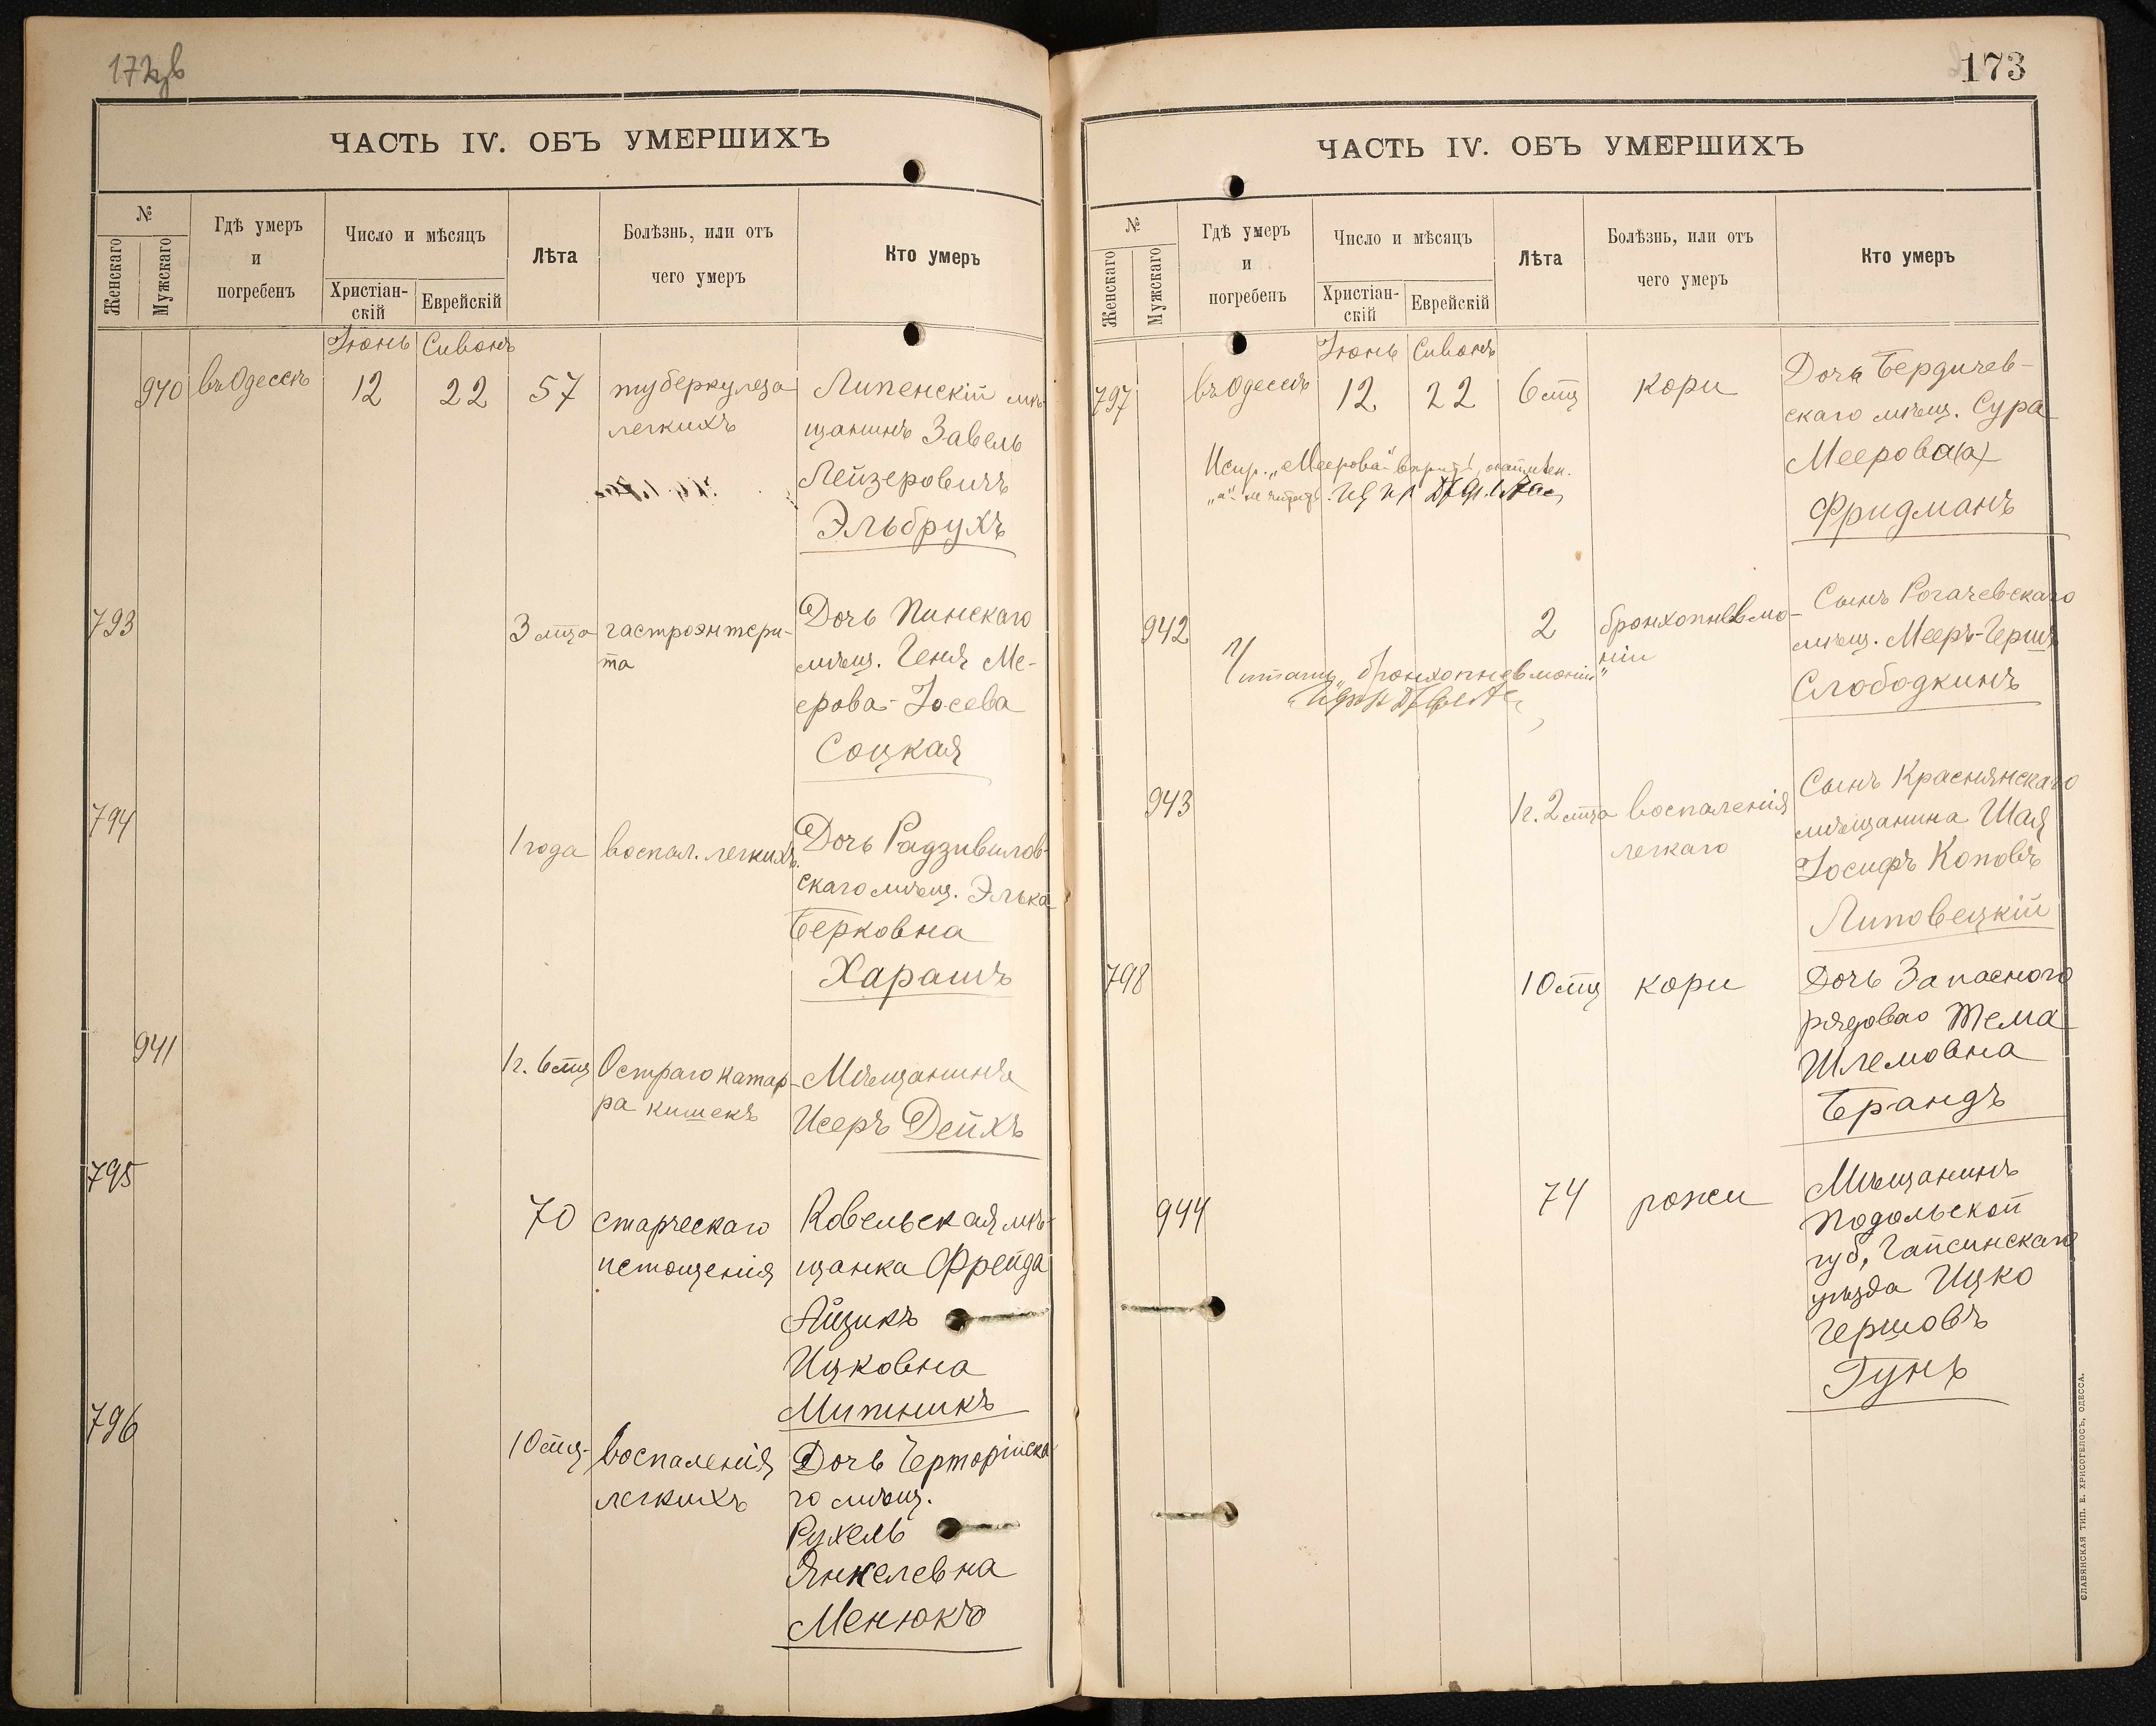 ЧАСТЬ IV. ОБЪ УМЕРШИХЪ
№
Женскаго
Мужскаго
Гдѣ умеръ
и
погребенъ
Число и мѣсяцъ
Христіан-
скій
Еврейскій
Лѣта
Болѣзнь, или отъ
чего умеръ
Кто умеръ
Іюнь Сиванъ
940 въ Одессѣ 12 22 57 туберкулеза Липенскій мѣ-
легкихъ щанинъ Завель
Лейзеровичъ
Эльбрухъ
793 3 мца гастроэнтери- Дочь Пинскаго
та мѣщ. Геня Ме-
ерова-Іосева
Соцкая
794 1 года воспал. легкихъ. Дочь Радзивилов-
скаго мѣщ. Элька
Берковна
Харашъ
941 1 г. 6 мц Остраго катар- Мѣщанинъ
ра кишекъ Исеръ Дейхъ
795 70 старческаго Ковельская мѣ-
истощенія щанка Фрейда
Айзикъ
Ицковна
Митникъ
796 10 мц. воспаленія Дочь Черторійска-
легкихъ го мѣщ.
Рухель
Янкелевна
Менюкъ
173
ЧАСТЬ IV. ОБЪ УМЕРШИХЪ
№
Женскаго
Мужскаго
Гдѣ умеръ
и
погребенъ
Число и мѣсяцъ
Христіан-
скій
Еврейскій
Лѣта
Болѣзнь, или отъ
чего умеръ
Кто умеръ
Іюнь Сиванъ
797 въ Одессѣ 12 22 6 мц кори Дочь Бердичев-
скаго мѣщ. Сура
Меерова(а)
Фридманъ
Испр. „Меерова"
„а" не читать.
942 2 бронхопневмо- Сынъ Рогачевскаго
ніи мѣщ. Мееръ-Гершъ
Слободкинъ
Читать „бронхопневмоніи"
943 1 г. 2 мца воспаленія Сынъ Краснянскаго
легкаго мѣщанина Шая
Іосифъ Коповъ
Липовецкій
798 10 мц кори Дочь Запасного
рядоваго Тема
Шлемовна
Брандъ
944 74 рожи Мѣщанинъ
Подольской
губ, Гайсинскаго
уѣзда Ицко
Гершовъ
Гунь
СЛАВЯНСКАЯ ТИП. Е. ХРИСОГЕЛОСЪ, ОДЕССА.